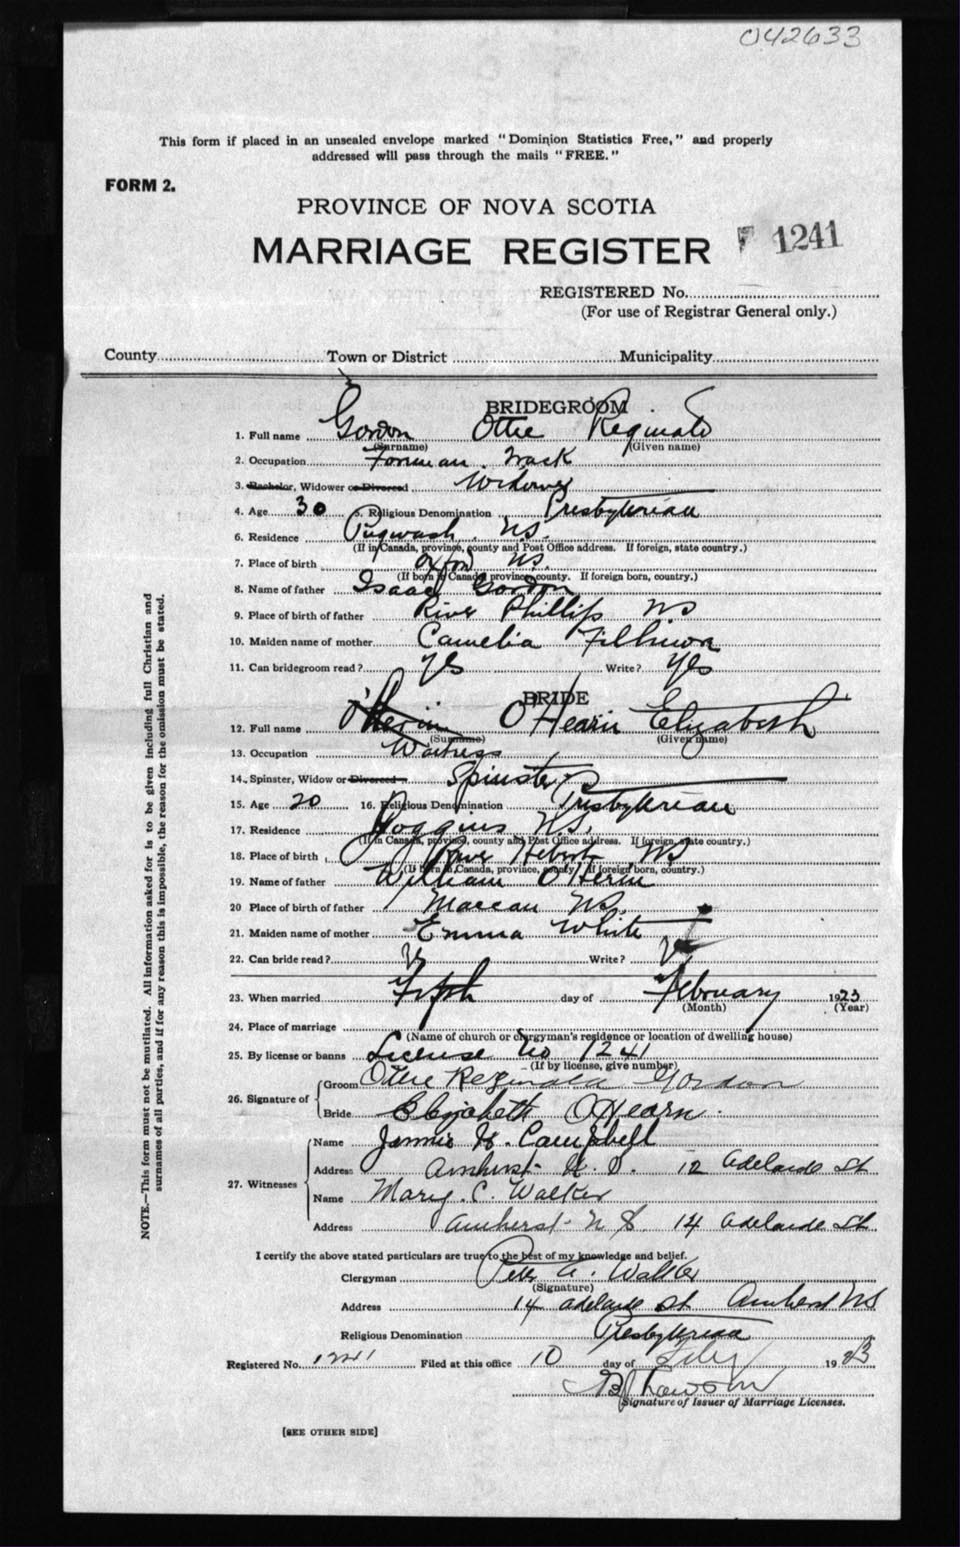 042633
This form if placed in an unsealed envelope marked "Dominion Statistics Free," and properly
addressed will pass through the mails "FREE."
FORM 2.
PROVINCE OF NOVA SCOTIA
MARRIAGE REGISTER F 1241
REGISTERED No.
(For use of Registrar General only.)
County Town or District Municipality
BRIDEGROOM
1. Full name Gordon Ottie Reginald
(Surname) (Given name)
2. Occupation Forman Track
3. Bachelor, Widower or Divorced Widower
4. Age 30 5. Religious Denomination Presbyterian
6. Residence Pugwash N.S.
(If in Canada, province, county and Post Office address. If foreign, state country.)
7. Place of birth Oxford N.S.
(If born in Canada, province, county. If foreign born, country.)
8. Name of father Isaac Gordon
9. Place of birth of father River Phillip NS
10. Maiden name of mother Camelia Fillmor
11. Can bridegroom read? Yes Write? Yes
BRIDE
12. Full name O'Hearn Elizabeth
(Surname) (Given name)
13. Occupation Waitress
14. Spinster, Widow or Divorced Spinster
15. Age 20 16. Religious Denomination Presbyterian
17. Residence Joggins N.S.
(If in Canada, province, county and Post Office address. If foreign, state country.)
18. Place of birth River Hebert NS
(If born in Canada, province, county. If foreign born, country.)
19. Name of father William O'Herin
20 Place of birth of father Maccan NS.
21. Maiden name of mother Emma White
22. Can bride read? Write?
23. When married Fifth day of February 1923
(Month) (Year)
24. Place of marriage
(Name of church or clergyman's residence or location of dwelling house)
25. By license or banns License No 1241
(If by license, give number)
26. Signature of Groom Ottie Reginald Gordon
Bride Elizabeth O'Hearn.
27. Witnesses Name Jennie H. Campbell
Address Amherst N.S. 12 Adelaide St
Name Mary. C. Walker
Address Amherst N S 14 Adelaide St.
I certify the above stated particulars are true to the best of my knowledge and belief.
Clergyman Peter A. Walker
(Signature)
Address 14 Adelaide St Amherst NS
Religious Denomination Presbyterian
Registered No. 1241 Filed at this office 10 day of Feby 1923
Signature of Issuer of Marriage Licenses.
[SEE OTHER SIDE]
NOTE.—This form must not be mutilated. All information asked for is to be given including full Christian and
surnames of all parties, and if for any reason this is impossible, the reason for the omission must be stated.